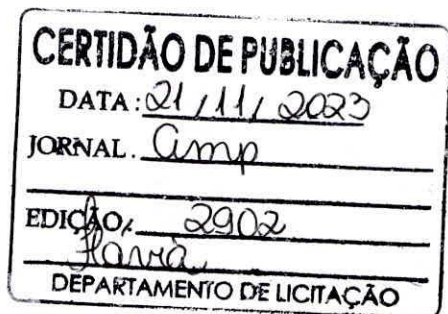 CERTIDÃO DE PUBLICAÇÃO
DATA: 21/11/2023
JORNAL. Amp
EDIÇÃO, 2902
DEPARTAMENTO DE LICITAÇÃO